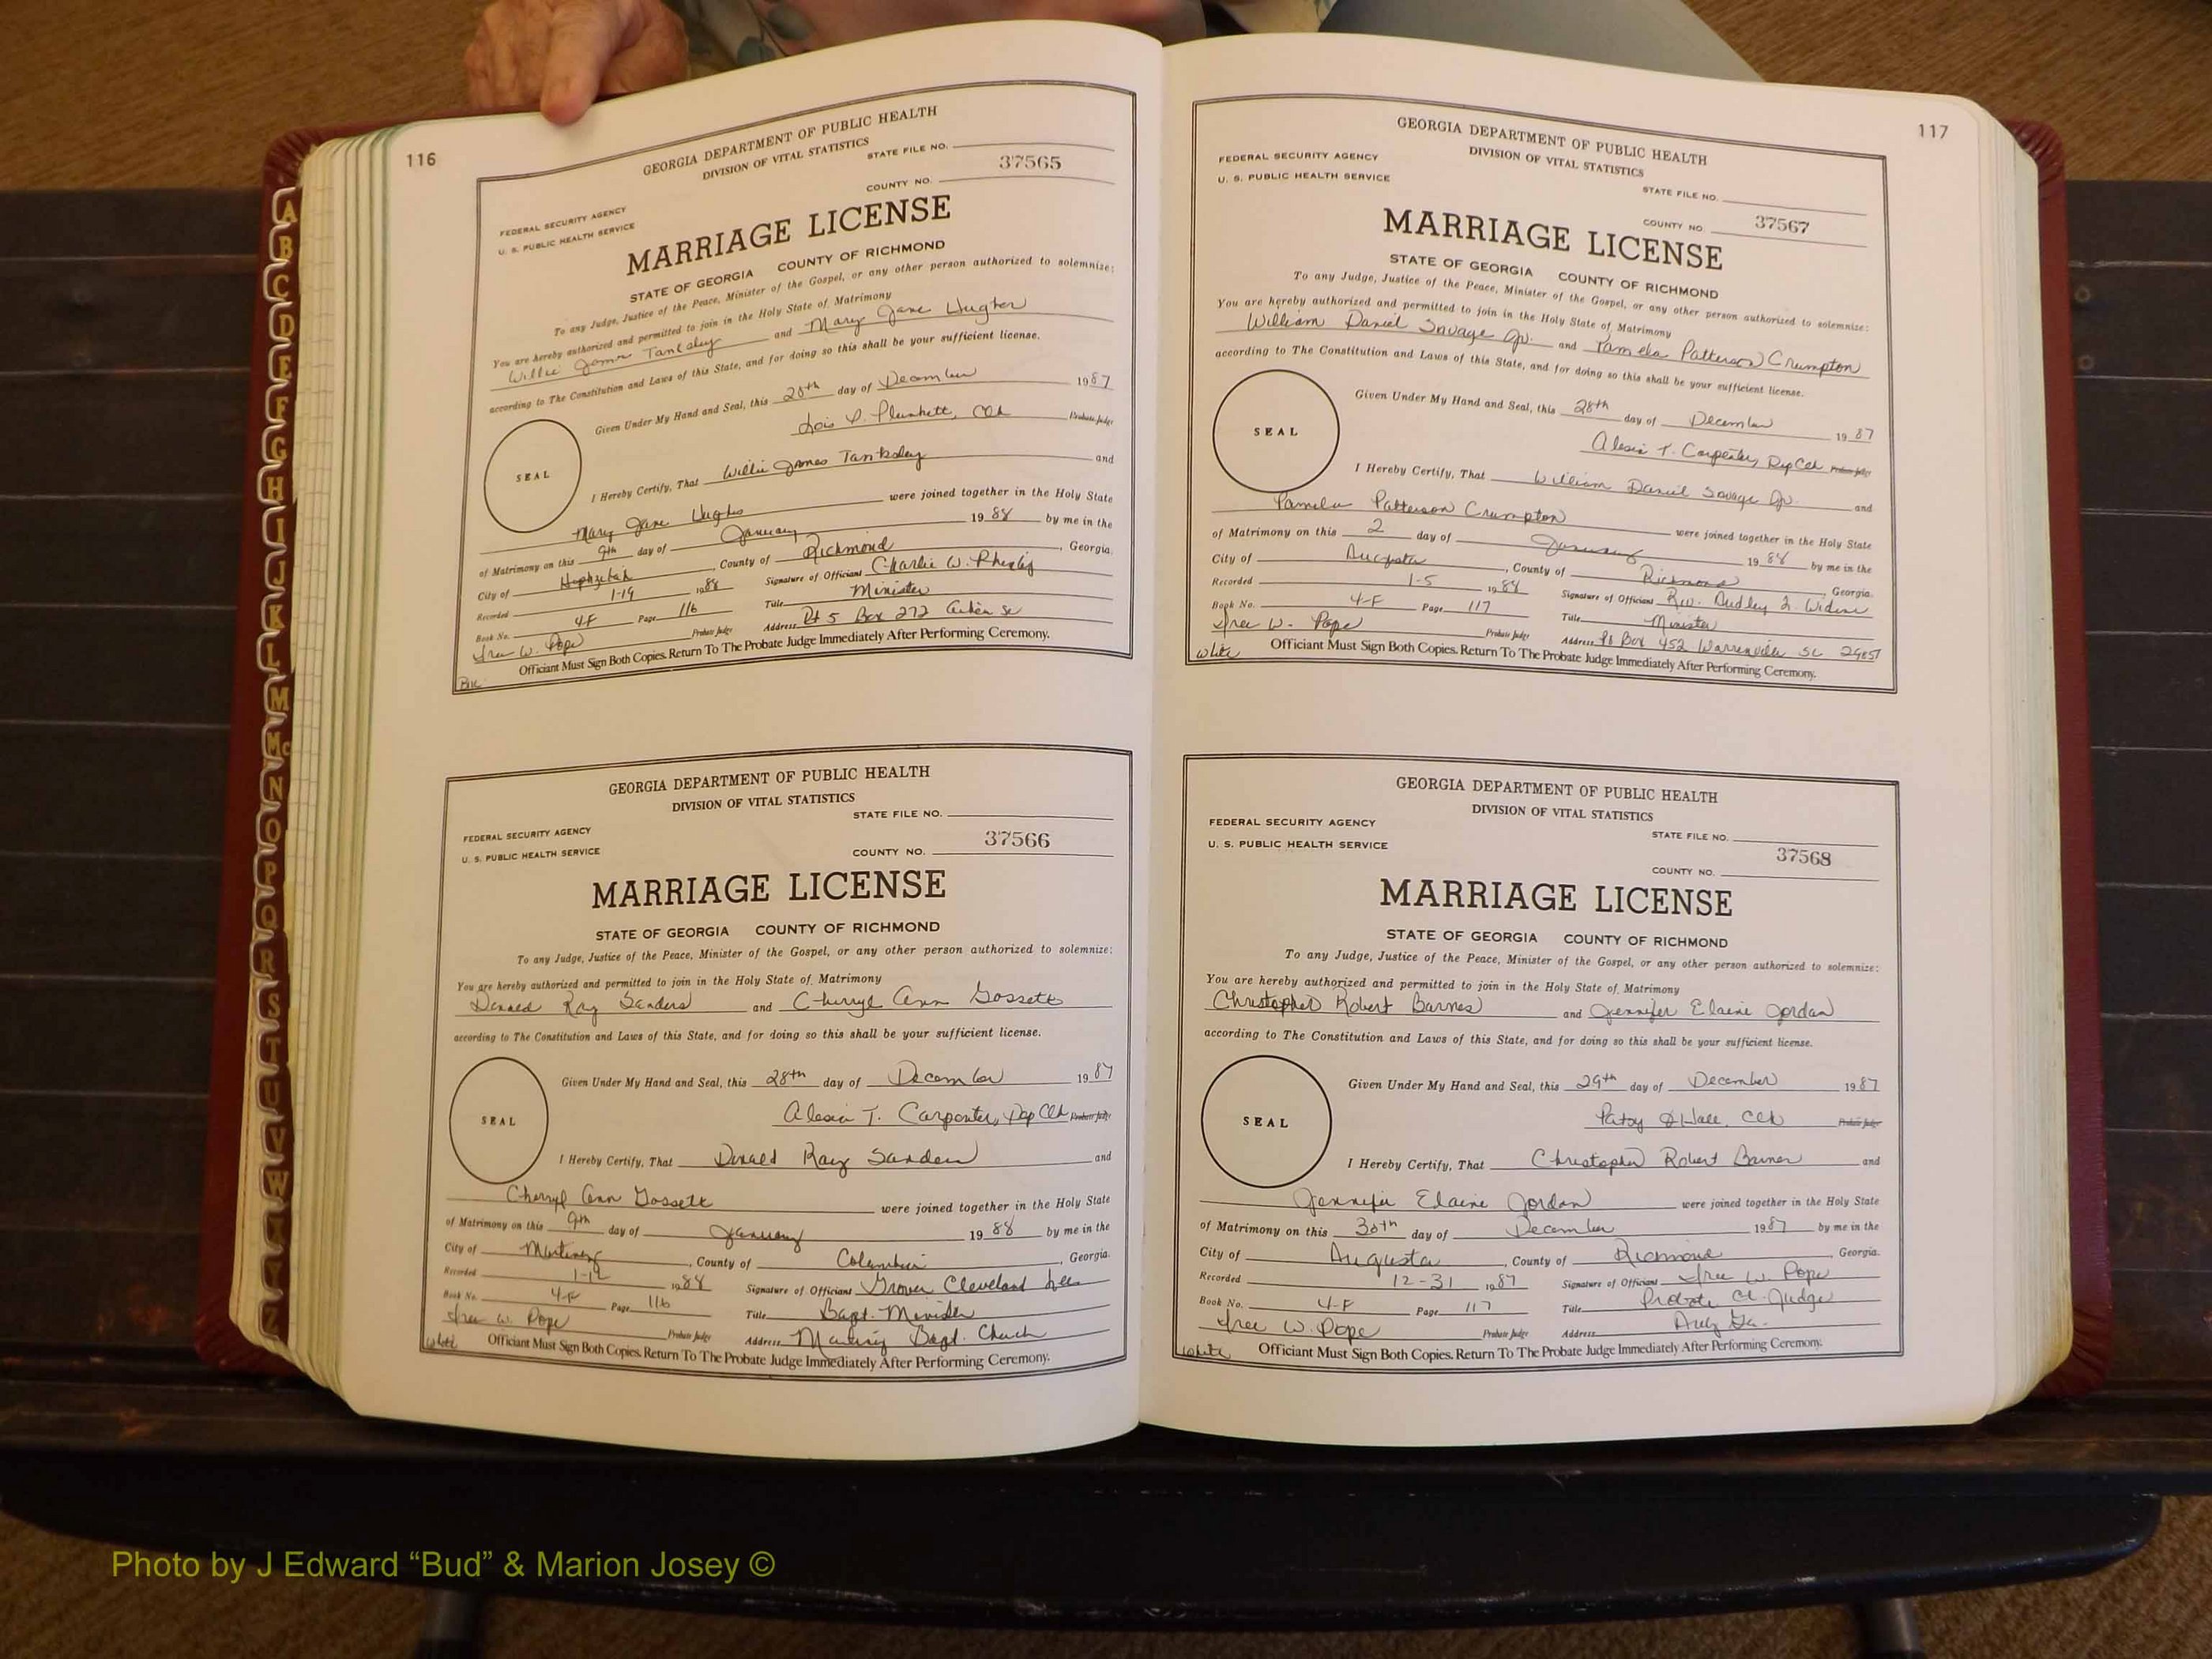 116
GEORGIA DEPARTMENT OF PUBLIC HEALTH
DIVISION OF VITAL STATISTICS
STATE FILE NO.
37565
COUNTY NO.
FEDERAL SECURITY AGENCY
U. S. PUBLIC HEALTH SERVICE
MARRIAGE LICENSE
STATE OF GEORGIA COUNTY OF RICHMOND
To any Judge, Justice of the Peace, Minister of the Gospel, or any other person authorized to solemnize:
You are hereby authorized and permitted to join in the Holy State of Matrimony
Willie James Tanksley and Mary Jane Hughes
according to The Constitution and Laws of this State, and for doing so this shall be your sufficient license.
Given Under My Hand and Seal, this 28th day of December 1987
Lois P. Plunkett, Clk Probate Judge
SEAL
I Hereby Certify, That Willie James Tanksley and
Mary Jane Hughes were joined together in the Holy State
of Matrimony on this 9th day of January 1988 by me in the
City of Hephzibah County of Richmond, Georgia.
Recorded 1-19 1988 Signature of Officiant Charlie W.
Book No. 4-F Page 116 Title Minister
W. Pope Probate Judge Address Rt 5 Box 272 Aiken SC
Officiant Must Sign Both Copies. Return To The Probate Judge Immediately After Performing Ceremony.
GEORGIA DEPARTMENT OF PUBLIC HEALTH
DIVISION OF VITAL STATISTICS
STATE FILE NO.
FEDERAL SECURITY AGENCY
U. S. PUBLIC HEALTH SERVICE
37566
COUNTY NO.
MARRIAGE LICENSE
STATE OF GEORGIA COUNTY OF RICHMOND
To any Judge, Justice of the Peace, Minister of the Gospel, or any other person authorized to solemnize:
You are hereby authorized and permitted to join in the Holy State of Matrimony
Donald Ray Sanders and Cherryl Ann Gossett
according to The Constitution and Laws of this State, and for doing so this shall be your sufficient license.
Given Under My Hand and Seal, this 28th day of December 1987
Alesia T. Carpenter, Dep Clk Probate Judge
SEAL
I Hereby Certify, That Donald Ray Sanders and
Cherryl Ann Gossett were joined together in the Holy State
of Matrimony on this 9th day of January 1988 by me in the
City of Martinez, County of Columbia, Georgia.
Recorded 1-12 1988 Signature of Officiant Grover Cleveland Lee
Book No. 4-F Page 116 Title Bapt. Minister
W. Pope Probate Judge Address Martinez Bapt. Church
White Officiant Must Sign Both Copies. Return To The Probate Judge Immediately After Performing Ceremony.
117
GEORGIA DEPARTMENT OF PUBLIC HEALTH
DIVISION OF VITAL STATISTICS
FEDERAL SECURITY AGENCY
U. S. PUBLIC HEALTH SERVICE
STATE FILE NO.
COUNTY NO. 37567
MARRIAGE LICENSE
STATE OF GEORGIA COUNTY OF RICHMOND
To any Judge, Justice of the Peace, Minister of the Gospel, or any other person authorized to solemnize:
You are hereby authorized and permitted to join in the Holy State of Matrimony
William Daniel Savage Jr. and Pamela Patterson Crumpton
according to The Constitution and Laws of this State, and for doing so this shall be your sufficient license.
Given Under My Hand and Seal, this 28th day of December 1987
Alesia T. Carpenter, Dep Clk Probate Judge
SEAL
I Hereby Certify, That William Daniel Savage Jr. and
Pamela Patterson Crumpton were joined together in the Holy State
of Matrimony on this 2 day of January 1988 by me in the
City of Augusta, County of Richmond Georgia.
Recorded 1-5 1988 Signature of Officiant Rev. Dudley
Book No. 4-F Page 117 Title Minister
W. Pope Probate Judge Address PO Box 452 Warrenville SC 29851
White Officiant Must Sign Both Copies. Return To The Probate Judge Immediately After Performing Ceremony.
GEORGIA DEPARTMENT OF PUBLIC HEALTH
DIVISION OF VITAL STATISTICS
FEDERAL SECURITY AGENCY
U. S. PUBLIC HEALTH SERVICE
STATE FILE NO.
37568
COUNTY NO.
MARRIAGE LICENSE
STATE OF GEORGIA COUNTY OF RICHMOND
To any Judge, Justice of the Peace, Minister of the Gospel, or any other person authorized to solemnize:
You are hereby authorized and permitted to join in the Holy State of Matrimony
Christopher Robert Barnes and Jennifer Elaine Jordan
according to The Constitution and Laws of this State, and for doing so this shall be your sufficient license.
Given Under My Hand and Seal, this 29th day of December 1987
Patsy Clk Probate Judge
SEAL
I Hereby Certify, That Christopher Robert Barnes and
Jennifer Elaine Jordan were joined together in the Holy State
of Matrimony on this 30th day of December 1987 by me in the
City of Augusta, County of Richmond, Georgia.
Recorded 12-31 1987 Signature of Officiant W. Pope
Book No. 4-F Page 117 Title Probate Ct. Judge
W. Pope Probate Judge Address Aug Ga.
White Officiant Must Sign Both Copies. Return To The Probate Judge Immediately After Performing Ceremony.
A
B
C
D
E
F
G
H
I
J
K
L
M
Mc
N
O
P
Q
R
S
T
U
V
W
Z
Photo by J Edward “Bud” & Marion Josey ©